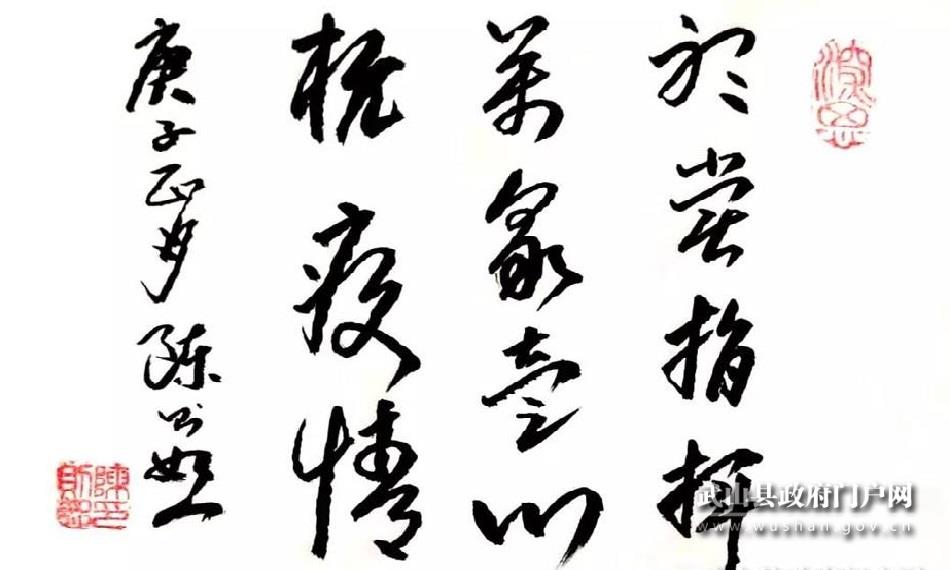 听党指挥
萬眾壹心
抗疫情
庚子正月 陈
武山县政府门户网
www.wushan.gov.cn